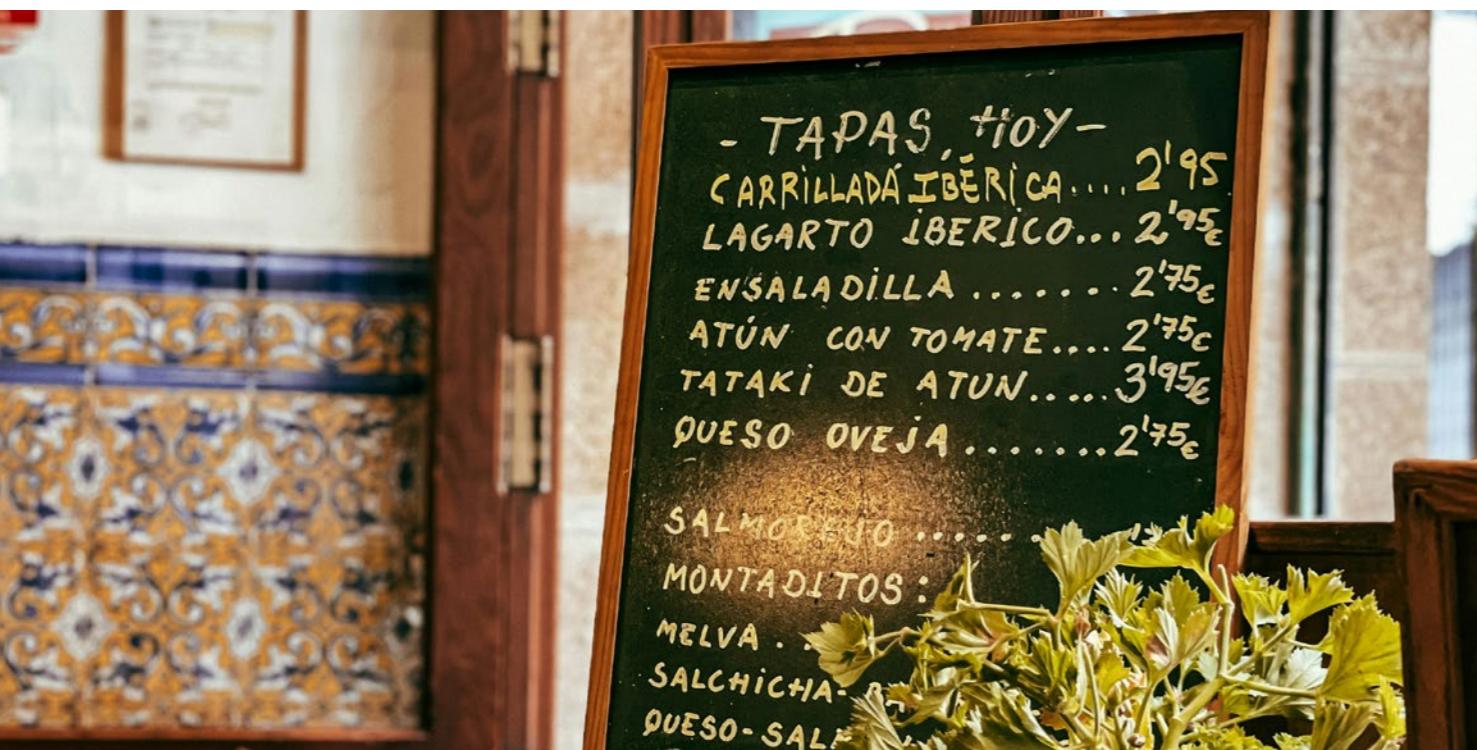 - TAPAS, HOY -
CARRILLADA IBÉRICA.... 2'95
LAGARTO IBERICO... 2'95€
ENSALADILLA ....... 2'75€
ATÚN CON TOMATE.... 2'75€
TATAKI DE ATUN..... 3'95€
QUESO OVEJA ....... 2'75€
SALMOREJO ......
MONTADITOS:
MELVA . .
SALCHICHA-
QUESO-